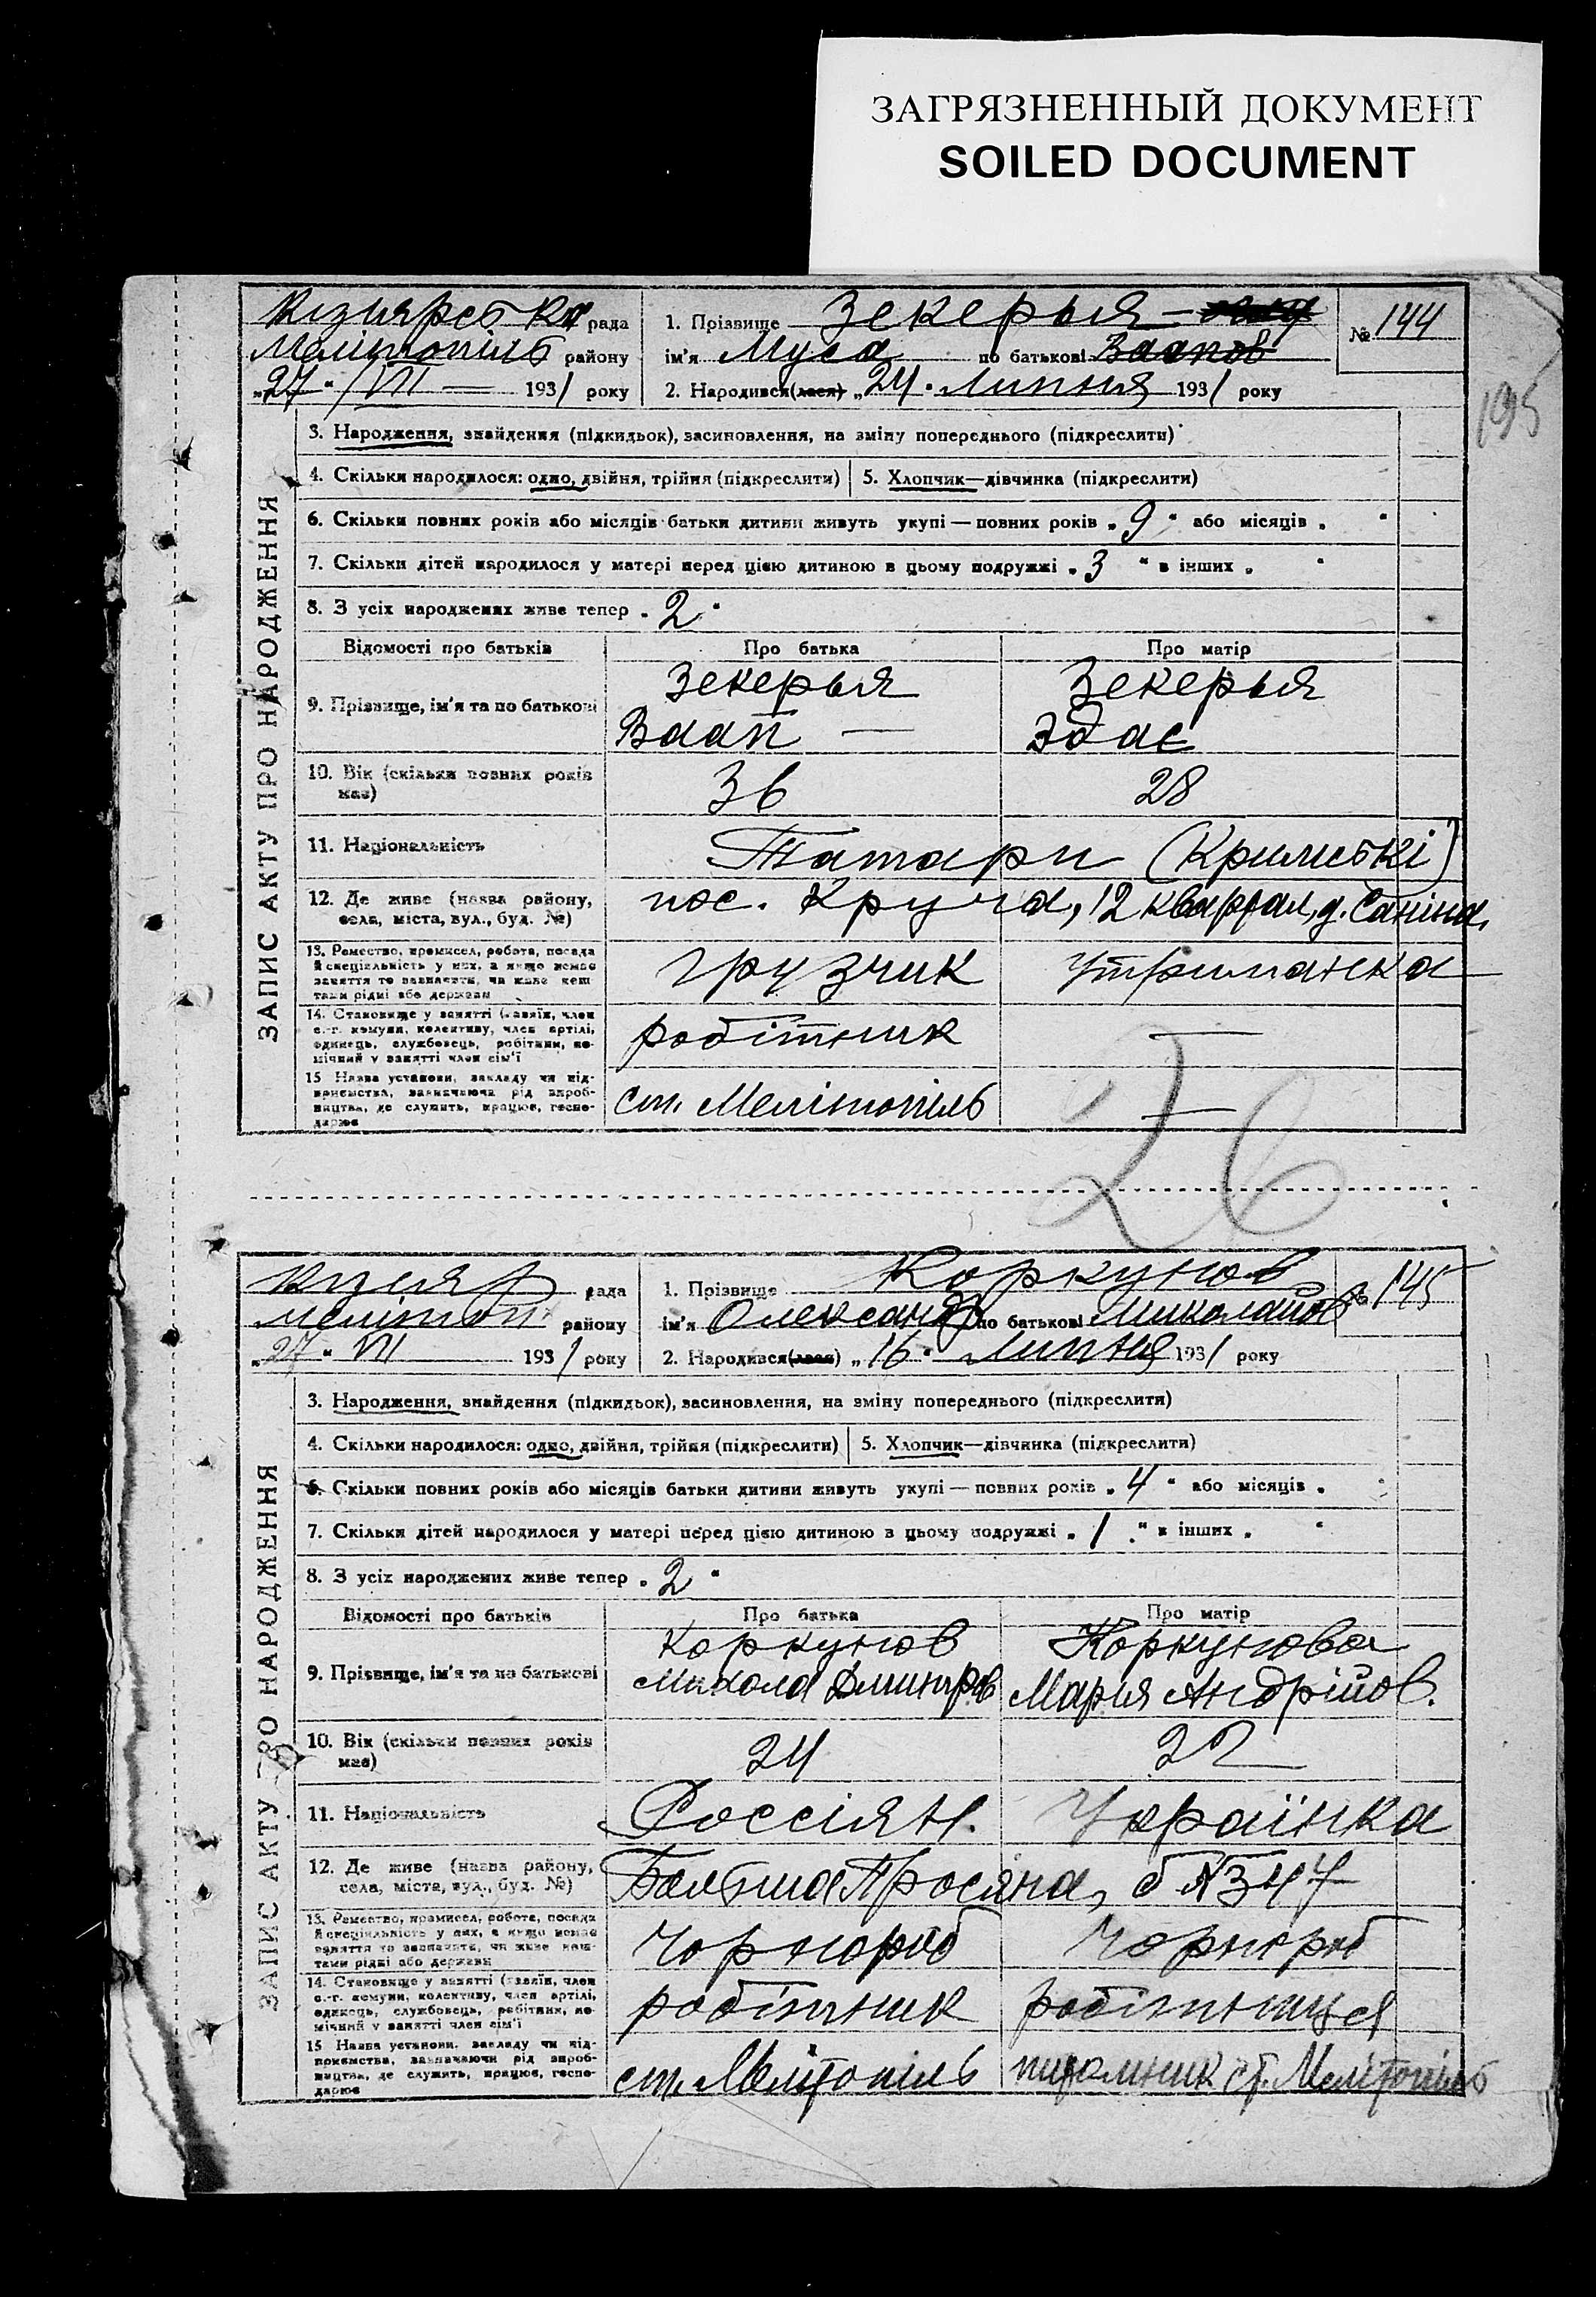 ЗАГРЯЗНЕННЫЙ ДОКУМЕНТ
SOILED DOCUMENT
195
ЗАПИС АКТУ ПРО НАРОДЖЕННЯ
Кізиярсбка рада
Мелітопіль району
„27“ VII 1931 року
1. Прізвище Зекерья
ім'я Муса по батькові Ваапов
2. Народився(лася) „24“ Липня 1931 року
№ 144
3. Народження, знайдення (підкидьок), засиновлення, на зміну попереднього (підкреслити)
4. Скільки народилося: одно, двійня, трійня (підкреслити)
5. Хлопчик—дівчинка (підкреслити)
6. Скільки повних років або місяців батьки дитини живуть укупі — повних років „9“ або місяців „ “
7. Скільки дітей народилося у матері перед цією дитиною в цьому подружжі „3“ в інших „ “
8. З усіх народжених живе тепер „2“
Відомості про батьків Про батька Про матір
9. Прізвище, ім'я та по батькові
Зекерья Зекерья
Ваап — Эдає
10. Вік (скільки повних років має)
36 28
11. Національність
Татари (Кримсбкі)
12. Де живе (назва району, села, міста, вул., буд. №)
пос. Круча, 12 квартал, д. Саніна,
13. Ремество, промисел, робота, посада й спеціяльність у них, а якщо немає заняття то зазначити, чи живе коштами рідні або держави
грузчик Утриманка
14. Становище у занятті (хазяїн, член с.-г. комуни, колективу, член артілі, одинець, службовець, робітник, помічний у занятті член сім'ї
робітник —
15 Назва установи, закладу чи підприємства, зазначаючи рід виробництва, де служить, працює, господарює
ст. Мелітопіль —
26
ЗАПИС АКТУ ПРО НАРОДЖЕННЯ
Кізияр рада
Мелітоп. району
„27“ VII 1931 року
1. Прізвище Коркунов
ім'я Олександр по батькові Миколайов
2. Народився(лася) „16“ Липня 1931 року
№ 145
3. Народження, знайдення (підкидьок), засиновлення, на зміну попереднього (підкреслити)
4. Скільки народилося: одно, двійня, трійня (підкреслити)
5. Хлопчик—дівчинка (підкреслити)
6. Скільки повних років або місяців батьки дитини живуть укупі — повних років „4“ або місяців „ “
7. Скільки дітей народилося у матері перед цією дитиною в цьому подружжі „1“ в інших „ “
8. З усіх народжених живе тепер „2“
Відомості про батьків Про батька Про матір
9. Прізвище, ім'я та по батькові
Коркунов Коркунова
Микола Дмитров Мария Андрійов.
10. Вік (скільки повних років має)
24 22
11. Національність
Россіян. Українка
12. Де живе (назва району, села, міста, вул., буд. №)
Больша Просяна, б №347
13. Ремество, промисел, робота, посада й спеціяльність у них, а якщо немає заняття то зазначити, чи живе коштами рідні або держави
Чорнороб Чорнороб
14. Становище у занятті (хазяїн, член с.-г. комуни, колективу, член артілі, одинець, службовець, робітник, помічний у занятті член сім'ї
робітник робітниця
15 Назва установи, закладу чи підприємства, зазначаючи рід виробництва, де служить, працює, господарює
ст. Мелітопіль питомник ст. Мелітопіль